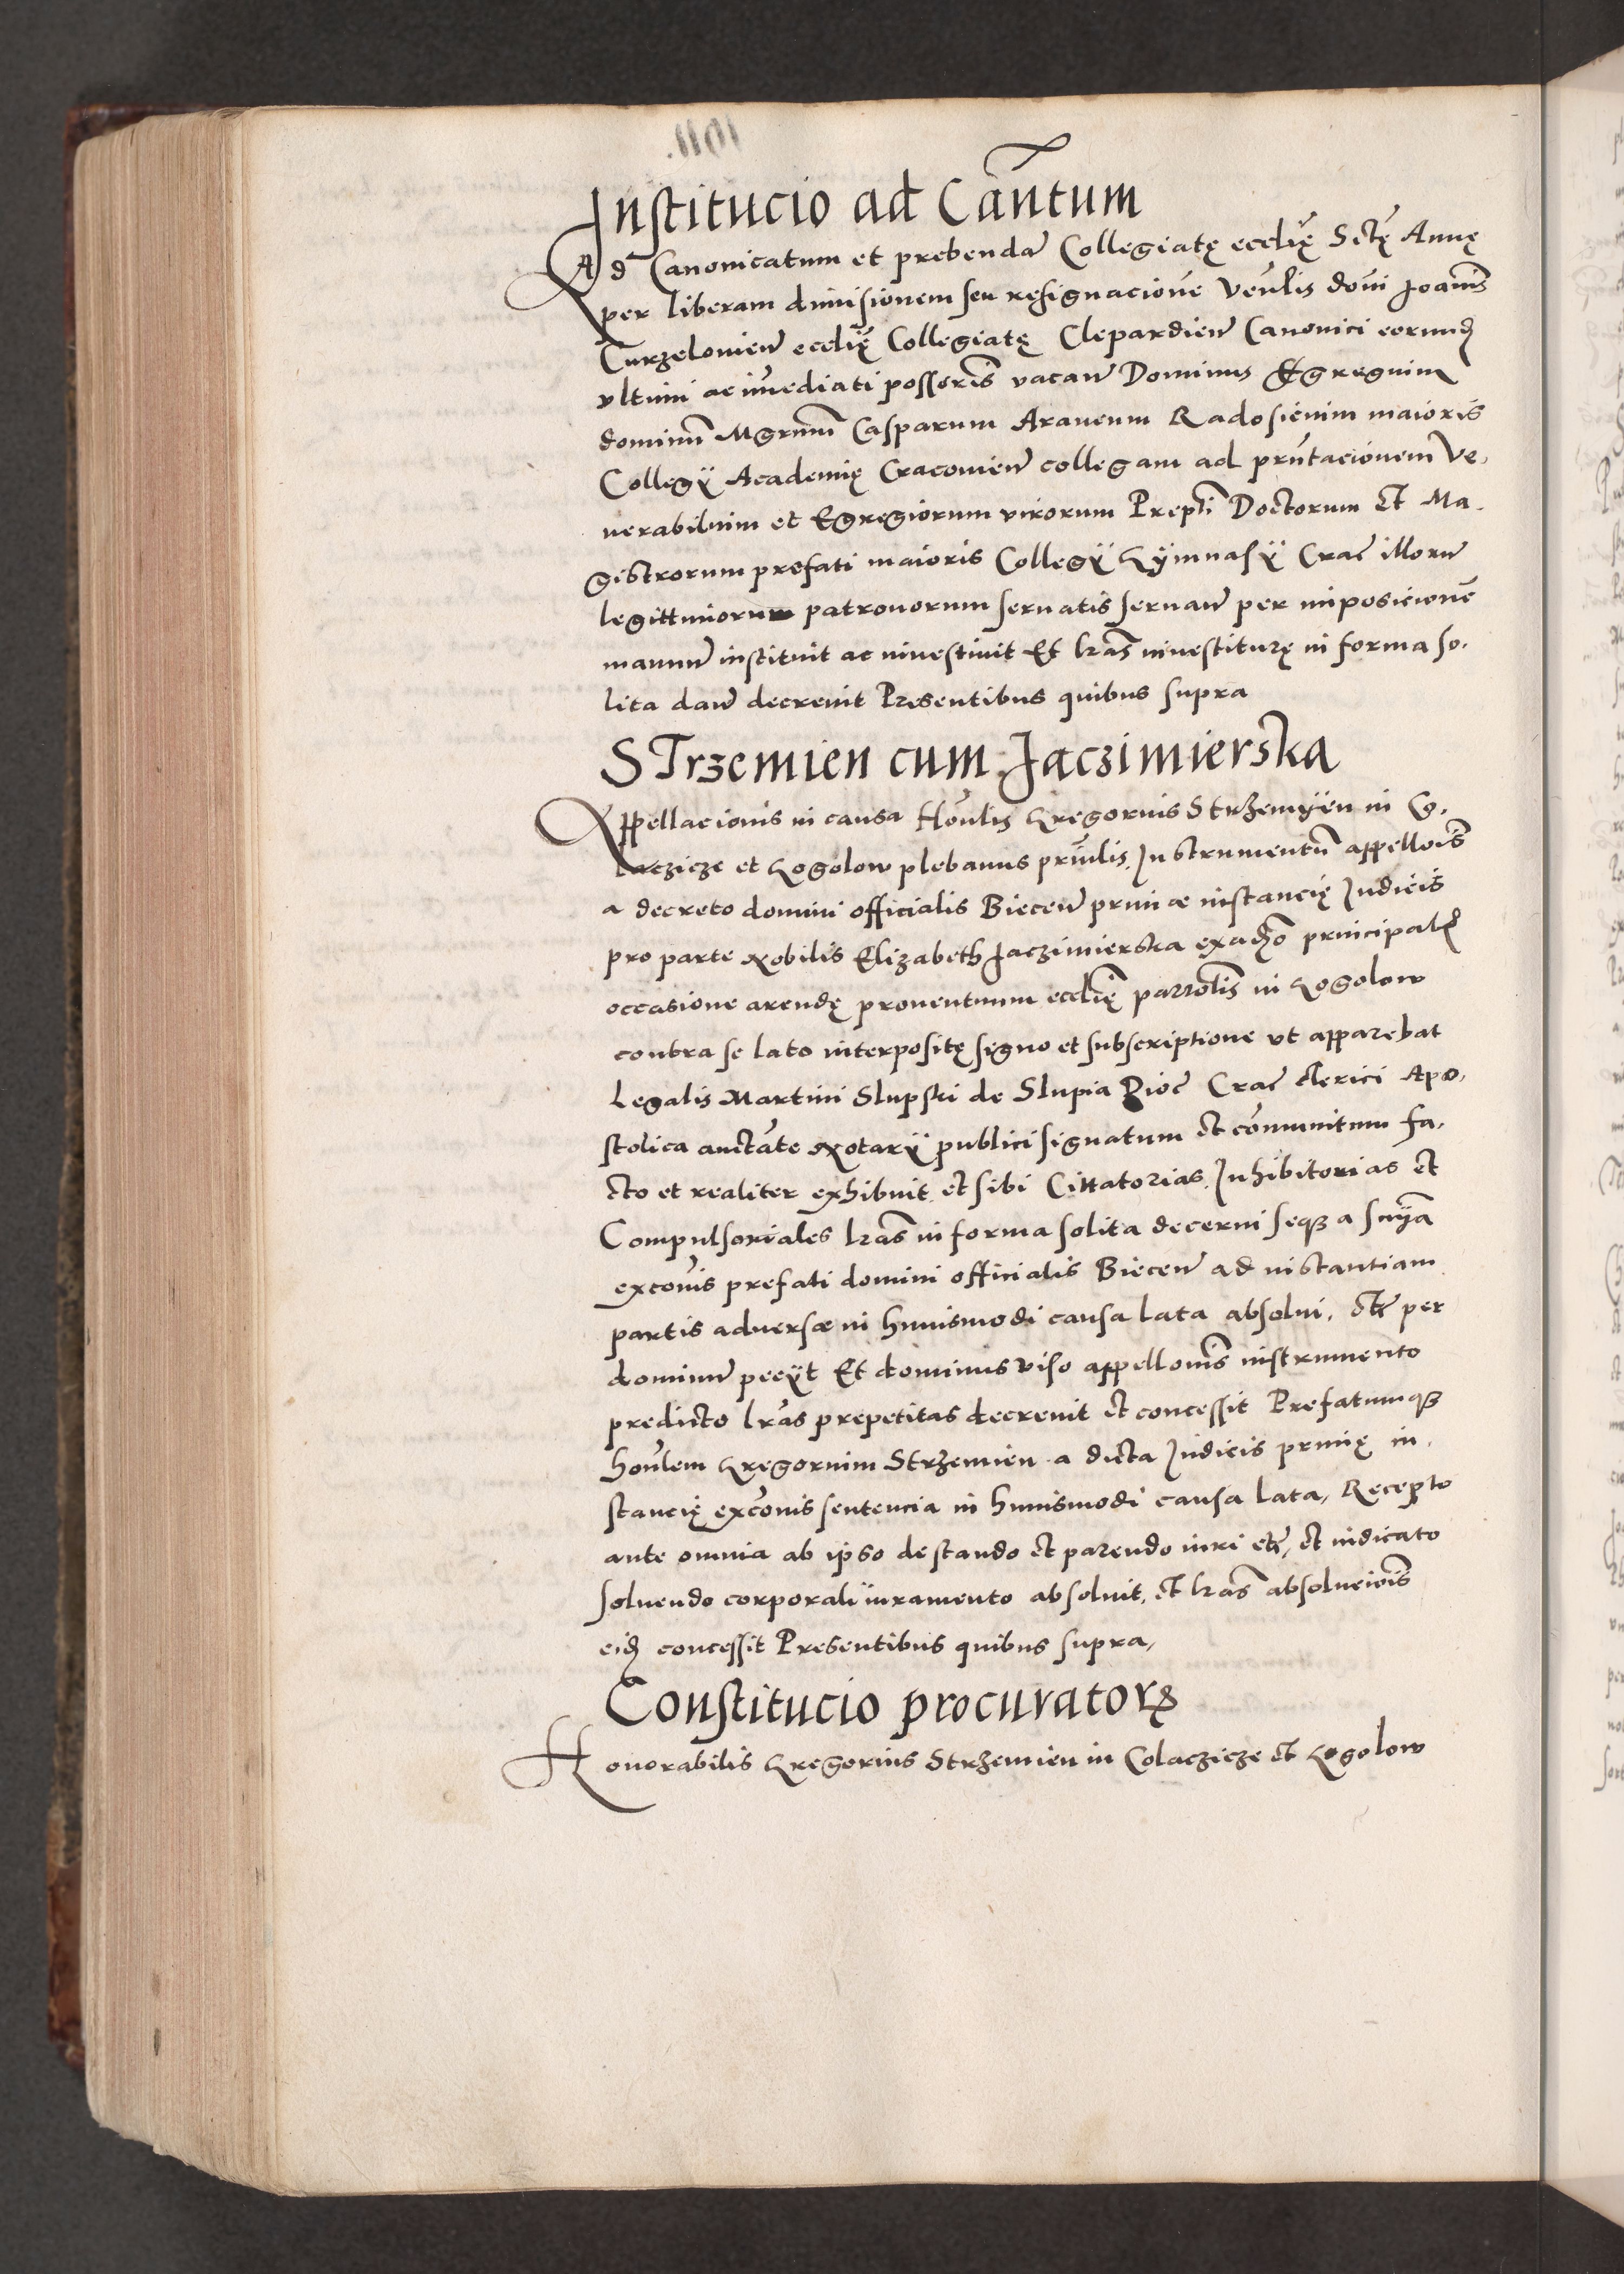 Institucio ad Cañtum
Ad Canonicatum et prebendã Collegiatę ecclię Sctę Annę
per liberam dimisionem seu resignacionẽ Veñlis dõni Joañis
Curzelovieñ ecclię Collegiatę Clepardieñ Canonici eorund
ultimi ac im̃ediati possoris vacañ Dominus Egregium
dominũ Mgrum Casparum Araneum Radosienim maioris
Collegÿ Academię Cracovieñ collegam ad pr̃ntacionem Ve,
nerabilium et Egregiorum virorum Prepti Doctorum et Ma.
gistrorum prefati maioris Collegÿ Gÿmnasÿ Crac̃ illorũ
legittimorum patronorum servatis servañ per imposicionẽ
manuũ instituit ac investivit Et lr̃as investiturę in forma so.
lita dañ decrevit Presentibus quibus supra
STrzemien cum Jaczimierska
Appellacionis in causa Hoñlis Gregorius Strzemyen in Co.
laczicze et Gogolow plebanus prin̄lis, Instrumentũ appellõis
a decreto domini officialis Bieceñ primæ instancię Judicis
pro parte Nobilis Elizabeth Jaczimierska ex adso principalr
occasione arendę proventuum ecclię parrolis in Gogolow
contra se lato interpositę signo et subscriptione ut apparebat
Legalis Martini Slupski de Slupia Dioc̃ Crac̃ clerici Apo,
stolica auctãte Notarÿ publici signatum et com̃unitum fa,
cto et realiter exhibuit et sibi Cittatorias, Inhibitorias et
Compulsoriales lr̃as in forma solita decerni seq3 a snÿa
excõis prefati domini officialis Bieceñ ad instantiam
partis adversæ in huiusmodi causa lata absolvi, etc̃ per
dominũ peeÿt Et dominus viso appellonis instrumento
predicto lr̃as prepetitas decrevit et concessit Prefatumq3
hoñlem Gregorium Strzemien a dicta Judicis primę in.
stancię excõnis sentencia in huiusmodi causa lata, Recepto
ante omnia ab ipso de stando et parendo iuri etc̃, et iudicato
solvendo corporali iuramento absolvit, et lr̃as absoluciõis
eid concessit Presentibus quibus supra,
Constitucio procuratorꝝ
Honorabilis Gregorius Strzemien in Colaczicze et Gogolow